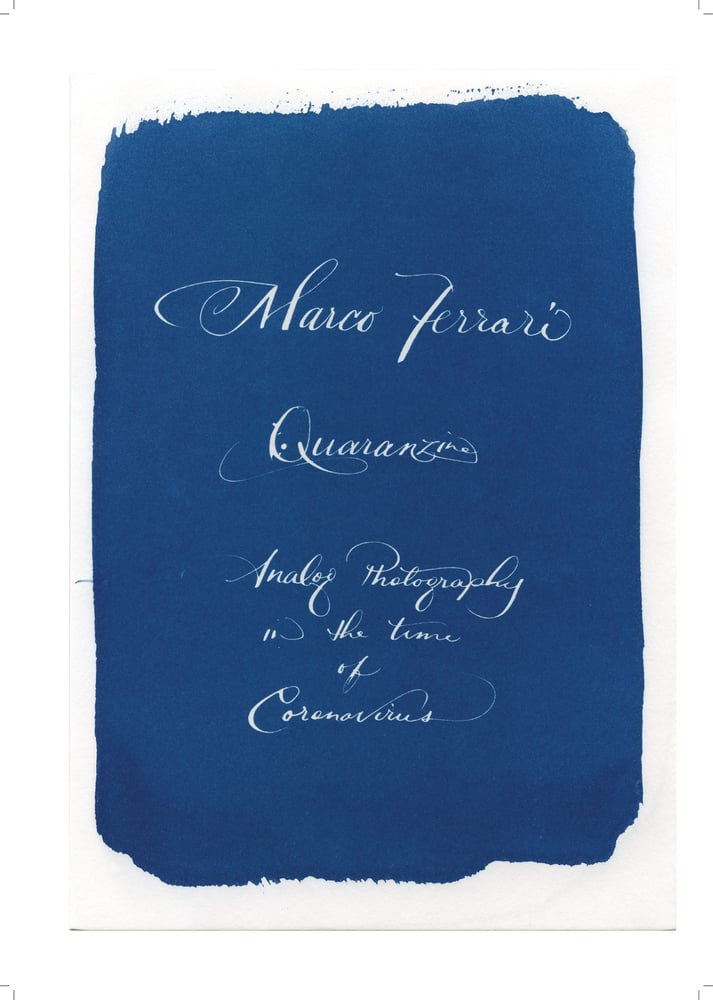 Marco Ferrari
Quaranzine
Analog Photography
in the time
of
Coronavirus